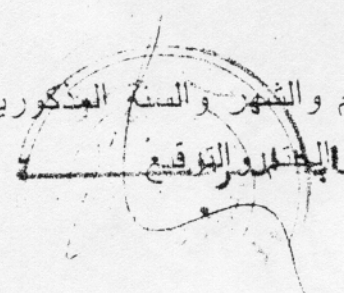 م والشهر والسنة المذكورين
الختم والتوقيع